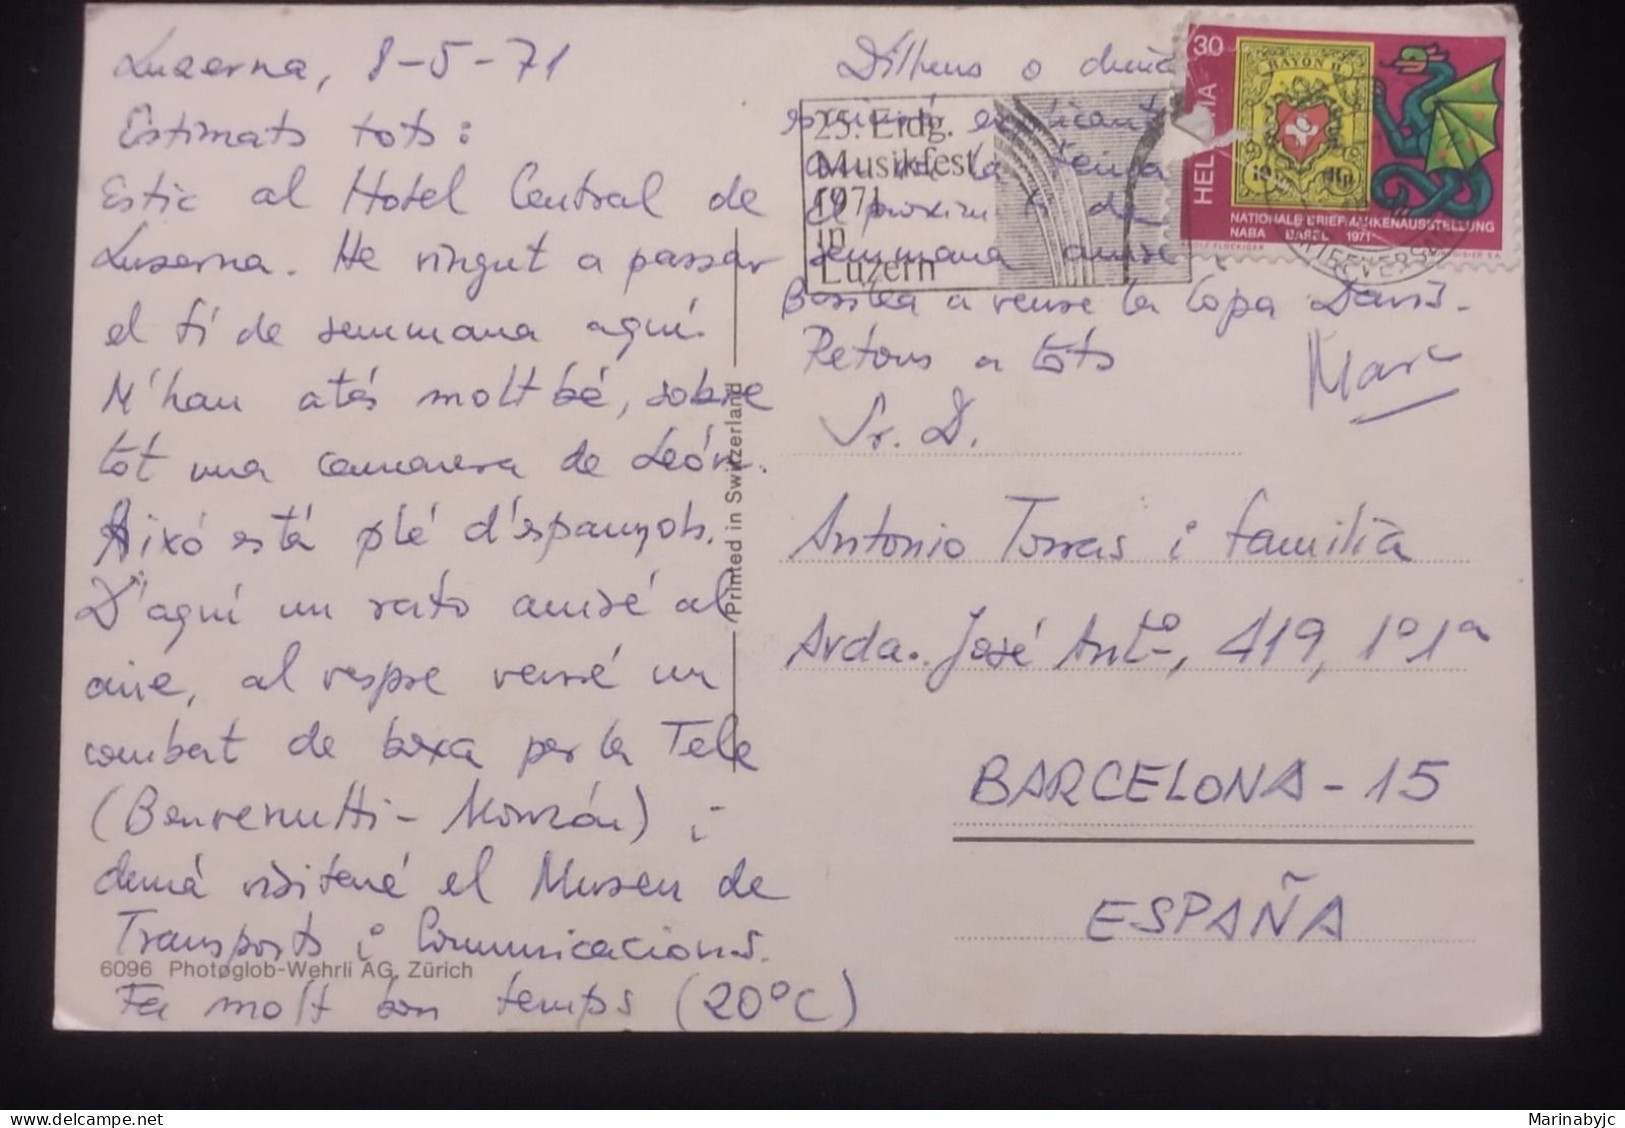 Luzerna, 8-5-71
Estimats tots:
Estic al Hotel Central de
Luzerna. He vingut a passar
el fí de semmana aquí.
M'han atés molt bé, sobre
tot una camarera de León.
Aixó está plé d'espanyols.
D'aquí un rato aniré al
cine, al vespre veuré un
combat de boxa per la Tele
(Benvenutti - Monzón) i
demá visitaré el Museu de
Transports i Comunicacions.
Fa molt bon temps (20°C)
Dilluns o dimá
escriuré explicant
com va la feina
El pròxim fi de
semmana aniré
Basilea a veure la Copa Davis.
Petons a tots
Marc
Sr. D.
Antonio Torras i família
Avda. José Antº, 419, 1º 1ª
BARCELONA - 15
ESPAÑA
25. Eidg.
Musikfest
1971
in
Luzern
30
HELVETIA
RAYON II
NATIONALE BRIEFMARKENAUSSTELLUNG
NABA BASEL 1971
Printed in Switzerland
6096 Photoglob-Wehrli AG, Zürich
delcampe.net
Marinabyjc